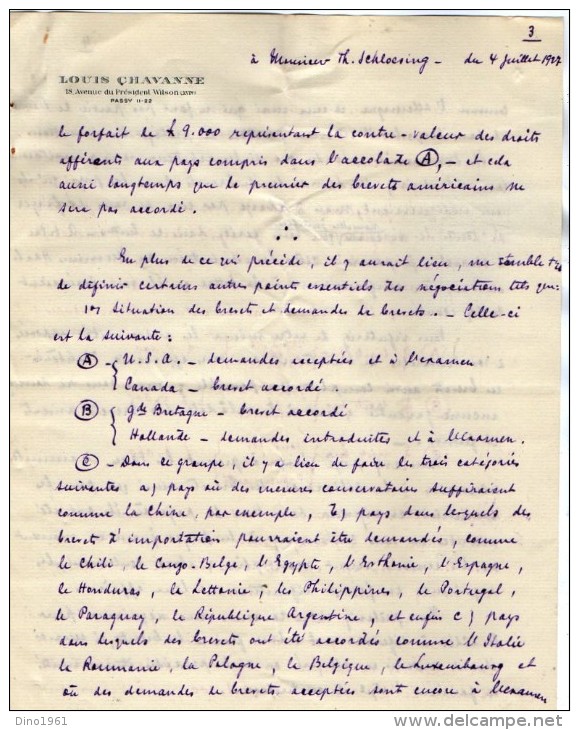 3
à Monsieur Th. Schloesing - du 4 juillet 1927
LOUIS CHAVANNE
18, Avenue du Président Wilson (XVIe)
PASSY 11-22
le forfait de £ 9.000 représentant la contre-valeur des droits
afférents aux pays compris dans l'accolade (A), - et cela
aussi longtemps que le premier des brevets américains ne
sera pas accordé.
En plus de ce qui précède, il y aurait lieu, me semble-t-il
de définir certains autres points essentiels des négociations tels que:
1o/ Situation des brevets et demandes de brevets. - Celle-ci
est la suivante:
(A) - { U.S.A. - demandes acceptées et à l'examen
Canada - brevet accordé
(B) { Gde Bretagne - brevet accordé
Hollande - demandes introduites et à l'examen.
(C) - Dans ce groupe, il y a lieu de faire les trois catégories
suivantes a) pays où des mesures conservatoires suffiraient
comme la Chine, par exemple, b) pays dans lesquels des
brevets d'importation pourraient être demandés, comme
le Chili, le Congo-Belge, l'Egypte, l'Esthonie, l'Espagne,
le Honduras, la Lettonie, les Philippines, le Portugal,
le Paraguay, la République Argentine, et enfin c) pays
dans lesquels des brevets ont été accordés comme l'Italie
la Roumanie, la Pologne, la Belgique, le Luxembourg et
où des demandes de brevets acceptées sont encore à l'examen
Dino1961
delcampe.net